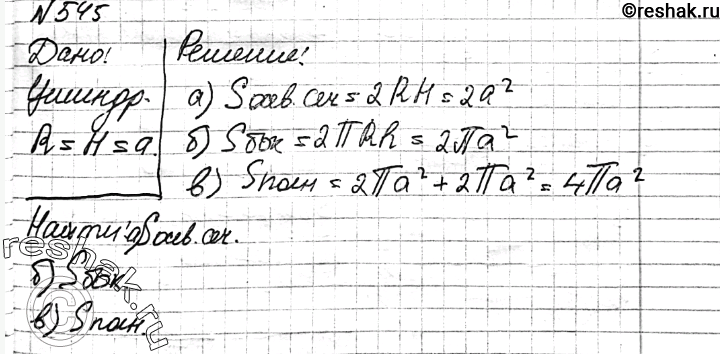 ©reshak.ru
№ 545
Дано:
Цилиндр.
R = H = a.
Решение:
а) Sосев.сеч = 2RH = 2a²
б) Sбок = 2πRh = 2πa²
в) Sполн = 2πa² + 2πa² = 4πa²
Найти: а) Sосев.сеч.
б) Sбок
в) Sполн.
reshak.ru